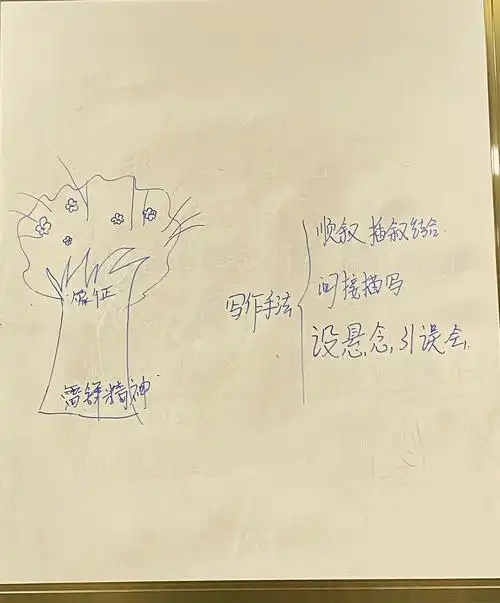 象征
雷锋精神
写作手法
顺叙 插叙结合.
间接描写
设悬念,引误会.